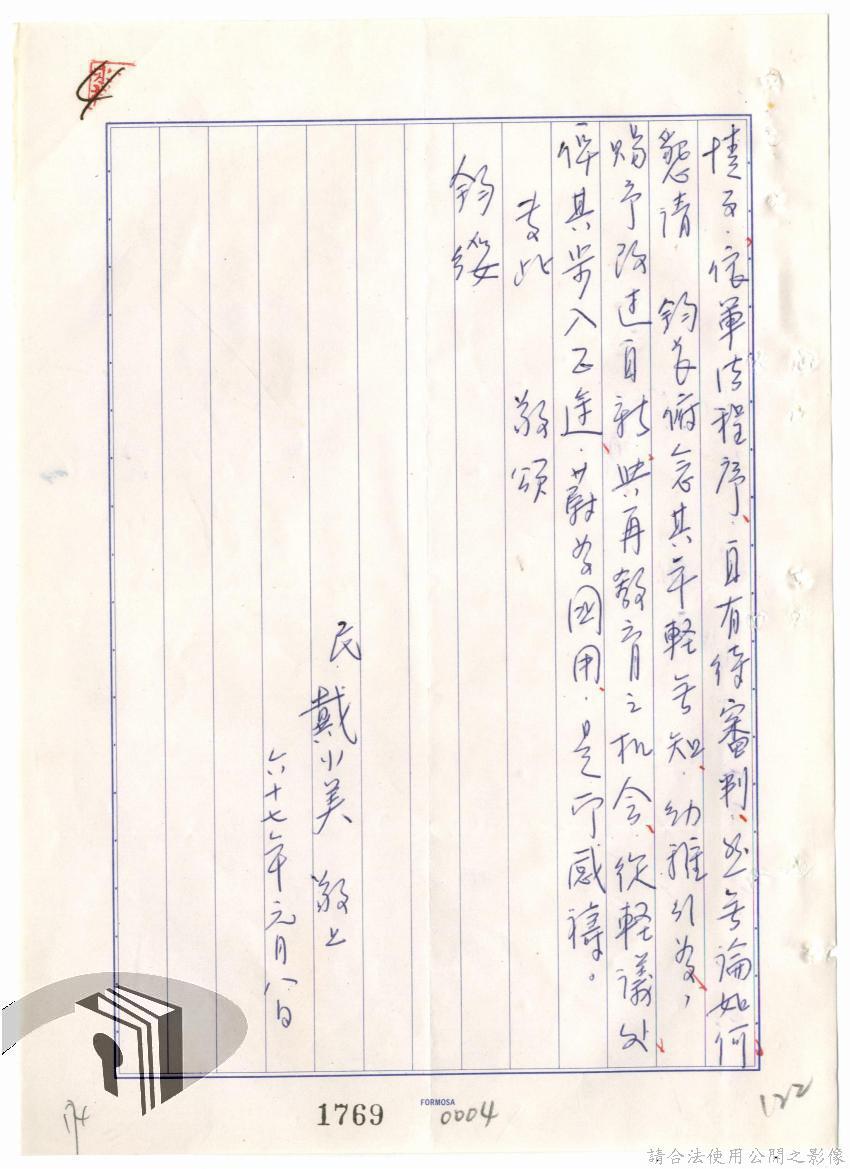 情至、依軍法程序、自有待審判、然無論如何
懇請　鈞長俯念其年輕無知、幼稚行為，
賜予改过自新、與再教育之机会、從輕議处
俾其步入正途、蔚為国用、是所感禱。
専此　敬頌
鈞綏
民　戴小美　敬上
六十七年元月八日
1769
FORMOSA
0004
122
174
請合法使用公開之影像